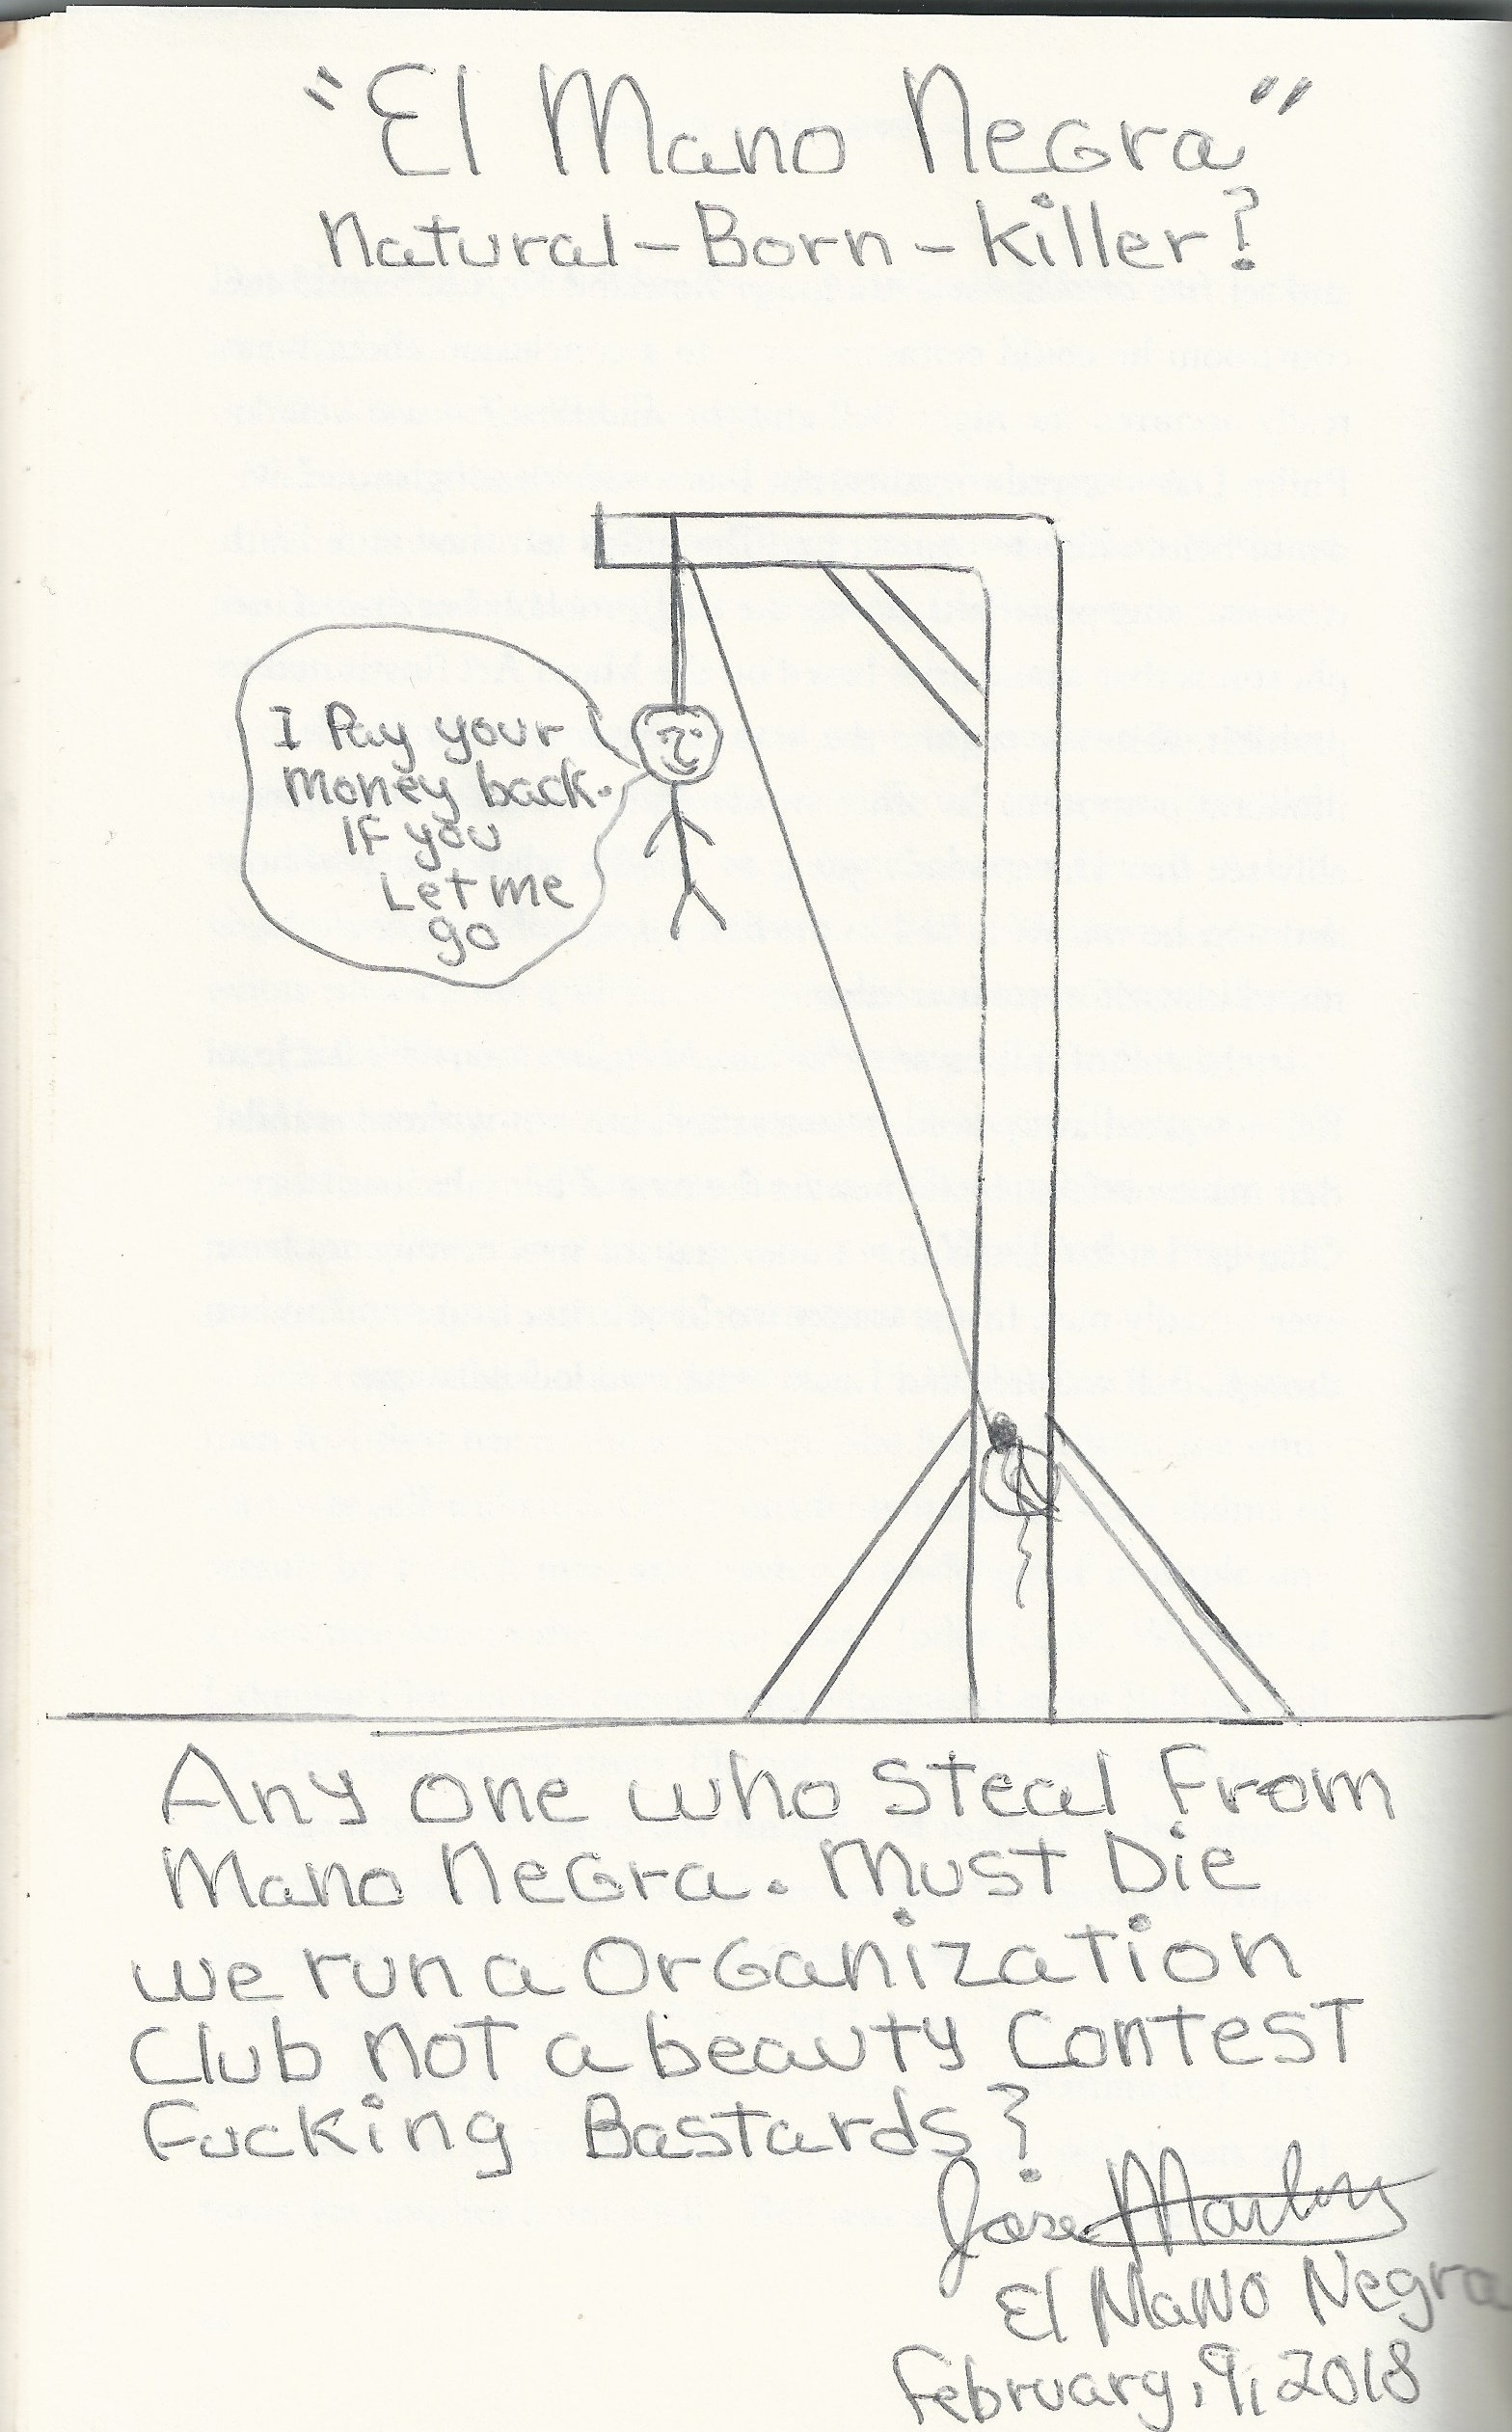 "El Mano Negra"
Natural-Born-Killer?
I Pay your
money back.
If you
Let me
go
Any one who steal From
Mano Negra. Must Die
we run a Organization
Club not a beauty contest
Fucking Bastards?
Jose
El Mano Negra
February, 9, 2018